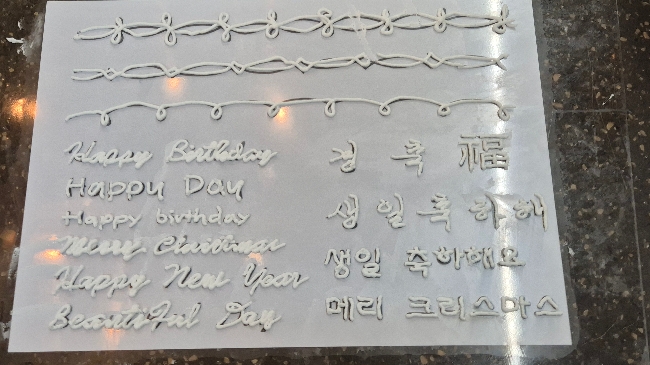 Happy Birthday
Happy Day
Happy birthday
Merry Christmas
Happy New Year
Beautiful Day
경 축 福
생일축하해
생일 축하해요
메리 크리스마스